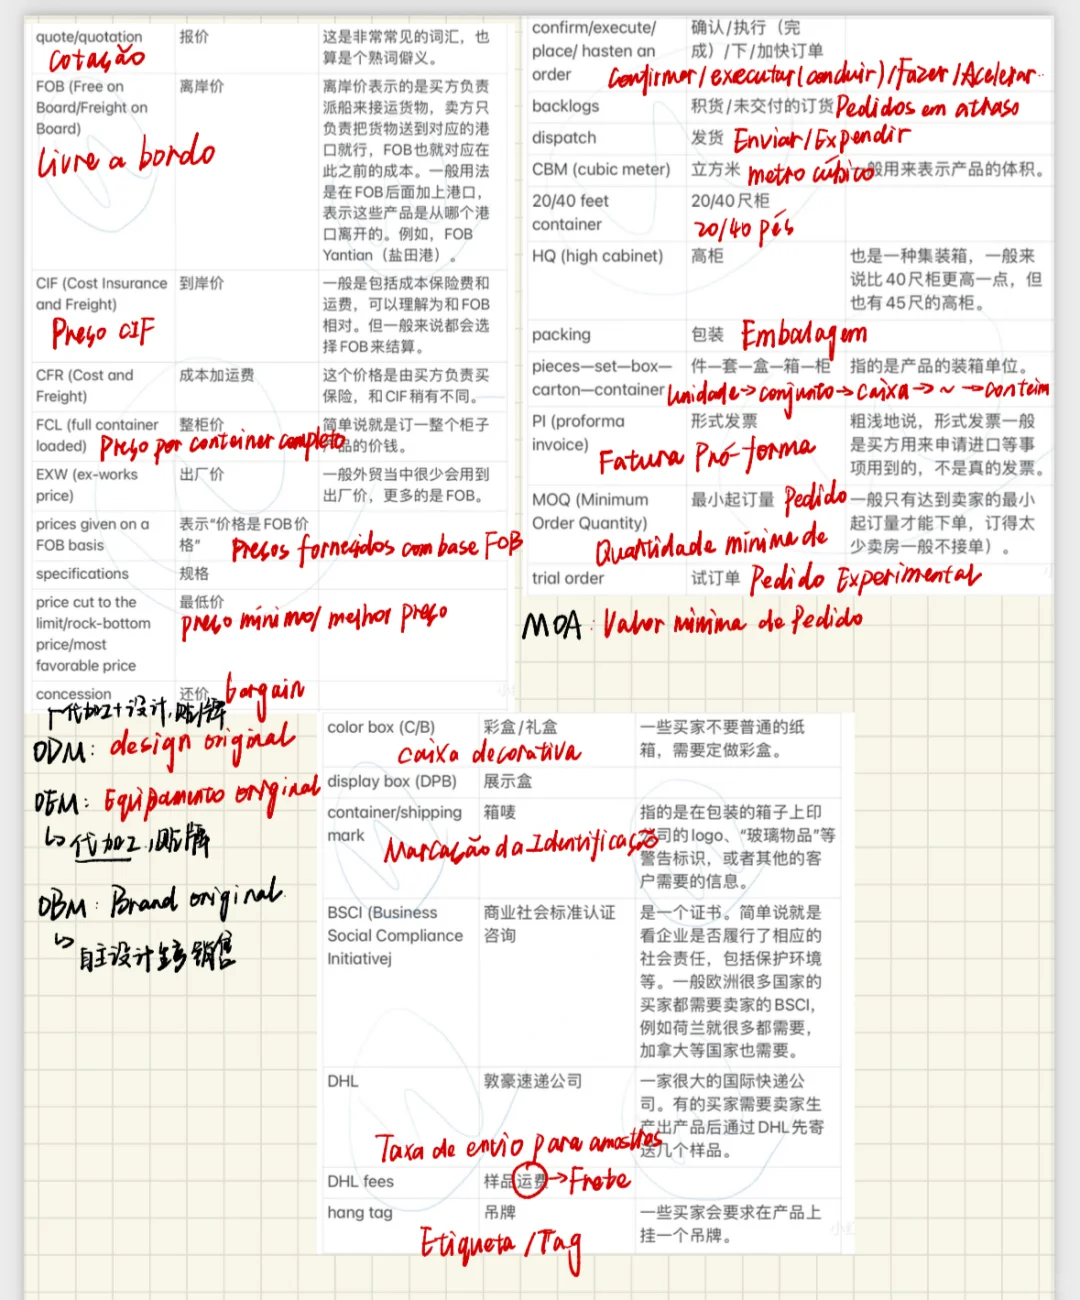 quote/quotation 报价 这是非常常见的词汇，也
算是个熟词僻义。
cotação
FOB (Free on 离岸价 离岸价表示的是买方负责
Board/Freight on 派船来接运货物，卖方只
Board) 负责把货物送到对应的港
Livre a bordo 口就行，FOB也就对应在
此之前的成本。一般用法
是在FOB后面加上港口，
表示这些产品是从哪个港
口离开的。例如，FOB
Yantian（盐田港）。
CIF (Cost Insurance 到岸价 一般是包括成本保险费和
and Freight) 运费，可以理解为和FOB
Preço CIF 相对。但一般来说都会选
择FOB来结算。
CFR (Cost and 成本加运费 这个价格是由买方负责买
Freight) 保险，和CIF稍有不同。
FCL (full container 整柜价 简单说就是订一整个柜子
loaded) Preço por container completo 品的价钱。
EXW (ex-works 出厂价 一般外贸当中很少会用到
price) 出厂价，更多的是FOB。
prices given on a 表示“价格是FOB价
FOB basis 格” Preços fornecidos com base FOB
specifications 规格
price cut to the 最低价
limit/rock-bottom preço mínimo/melhor preço
price/most
favorable price
concession 还价 bargain
代加工+设计,贴牌
ODM: design original
OEM: Equipamento original
↳代加工,贴牌
OBM: Brand original
↳自主设计生产销售
confirm/execute/ 确认/执行（完
place/ hasten an 成）/下/加快订单
order Confirmar/executar(conduir)/Fazer/Acelerar
backlogs 积货/未交付的订货 Pedidos em athaso
dispatch 发货 Enviar/Expendir
CBM (cubic meter) 立方米 metro cúbico 般用来表示产品的体积。
20/40 feet 20/40尺柜
container 20/40 pés
HQ (high cabinet) 高柜 也是一种集装箱，一般来
说比40尺柜更高一点，但
也有45尺的高柜。
packing 包装 Embalagem
pieces—set—box— 件—套—盒—箱—柜 指的是产品的装箱单位。
carton—container Unidade→conjunto→caixa→~→conteim
PI (proforma 形式发票 粗浅地说，形式发票一般
invoice) 是买方用来申请进口等事
Fatura Pró-forma 项用到的，不是真的发票。
MOQ (Minimum 最小起订量 Pedido 一般只有达到卖家的最小
Order Quantity) 起订量才能下单，订得太
Quantidade mínima de 少卖房一般不接单）。
trial order 试订单 Pedido Experimental
MOA: Valor mínima de Pedido
color box (C/B) 彩盒/礼盒 一些买家不要普通的纸
caixa decorativa 箱，需要定做彩盒。
display box (DPB) 展示盒
container/shipping 箱唛 指的是在包装的箱子上印
mark 公司的logo、“玻璃物品”等
Marcação da Identificação 警告标识，或者其他的客
户需要的信息。
BSCI (Business 商业社会标准认证 是一个证书。简单说就是
Social Compliance 咨询 看企业是否履行了相应的
Initiativej 社会责任，包括保护环境
等。一般欧洲很多国家的
买家都需要卖家的BSCI，
例如荷兰就很多都需要，
加拿大等国家也需要。
DHL 敦豪速递公司 一家很大的国际快递公
司。有的买家需要卖家生
产出产品后通过DHL先寄
Taxa de envio para amostras 送几个样品。
DHL fees 样品运费→Frete
hang tag 吊牌 一些买家会要求在产品上
挂一个吊牌。
Etiqueta/Tag